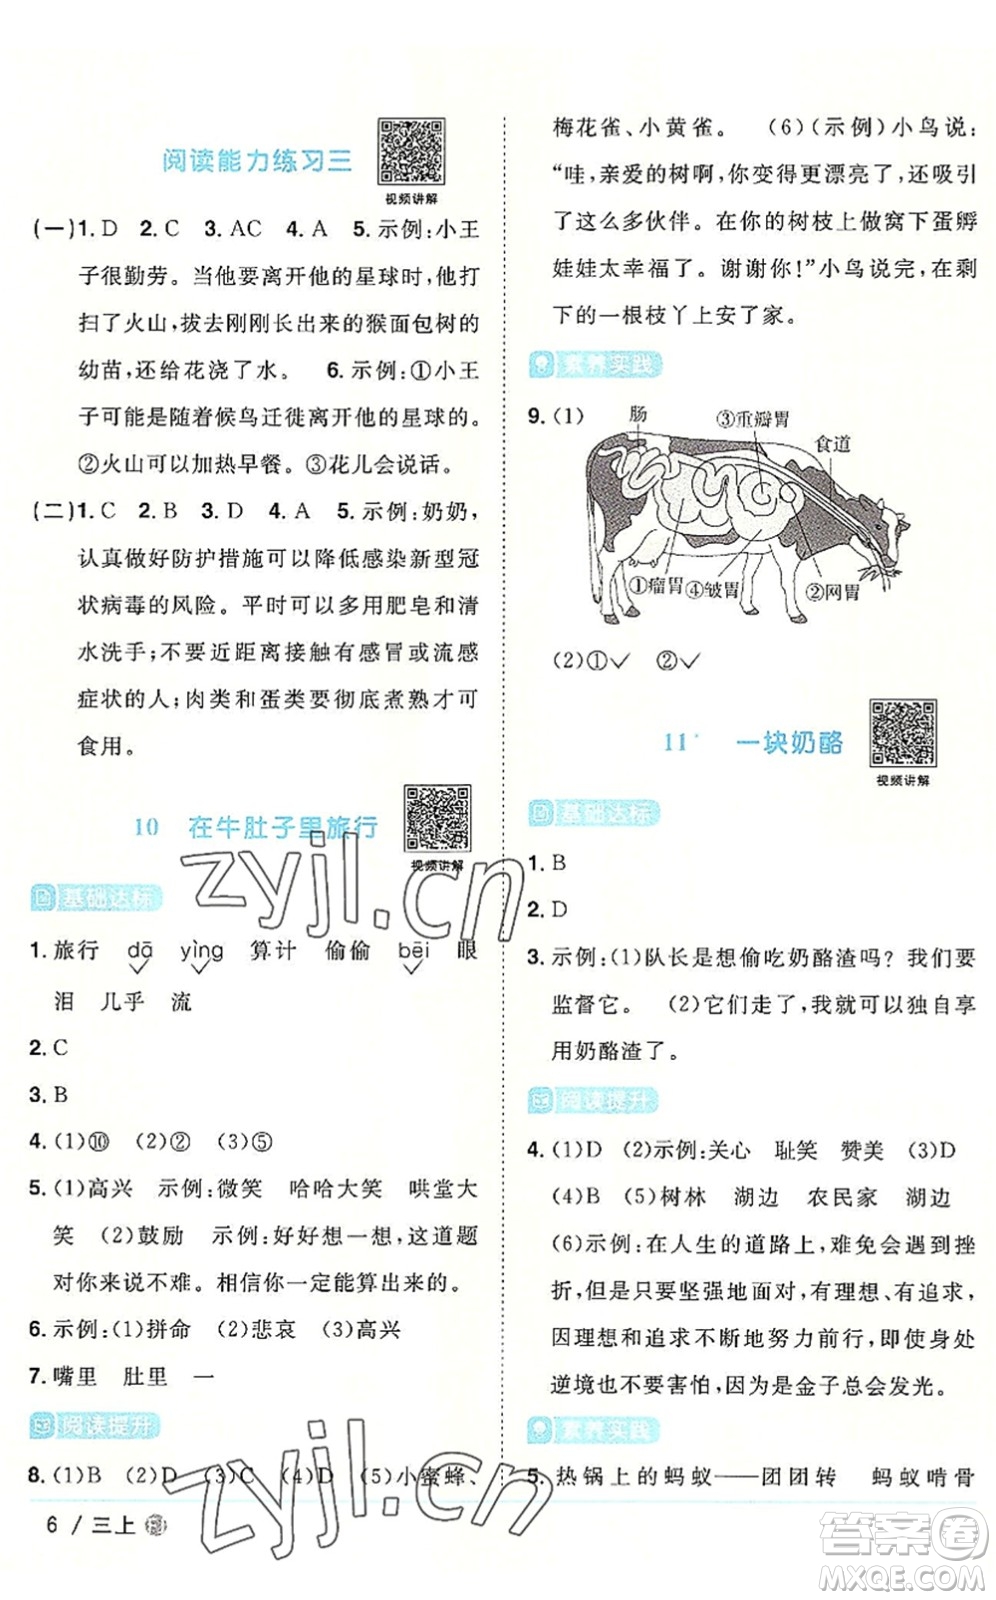 阅读能力练习三
视频讲解
(一)1. D 2. C 3. AC 4. A 5. 示例:小王
子很勤劳。当他要离开他的星球时,他打
扫了火山,拔去刚刚长出来的猴面包树的
幼苗,还给花浇了水。 6. 示例:①小王
子可能是随着候鸟迁徙离开他的星球的。
②火山可以加热早餐。③花儿会说话。
(二)1. C 2. B 3. D 4. A 5. 示例:奶奶,
认真做好防护措施可以降低感染新型冠
状病毒的风险。平时可以多用肥皂和清
水洗手;不要近距离接触有感冒或流感
症状的人;肉类和蛋类要彻底煮熟才可
食用。
10 在牛肚子里旅行
视频讲解
基础达标
1. 旅行 dā yìng 算计 偷偷 bēi 眼
泪 几乎 流
2. C
3. B
4. (1)⑩ (2)② (3)⑤
5. (1)高兴 示例:微笑 哈哈大笑 哄堂大
笑 (2)鼓励 示例:好好想一想,这道题
对你来说不难。相信你一定能算出来的。
6. 示例:(1)拼命 (2)悲哀 (3)高兴
7. 嘴里 肚里 一
阅读提升
8. (1)B (2)D (3)C (4)D (5)小蜜蜂、
梅花雀、小黄雀。 (6)(示例)小鸟说:
“哇,亲爱的树啊,你变得更漂亮了,还吸引
了这么多伙伴。在你的树枝上做窝下蛋孵
娃娃太幸福了。谢谢你!”小鸟说完,在剩
下的一根枝丫上安了家。
素养实践
9. (1) 肠 ③重瓣胃
食道
①瘤胃 ④皱胃 ②网胃
(2)①✓ ②✓
11 一块奶酪
视频讲解
基础达标
1. B
2. D
3. 示例:(1)队长是想偷吃奶酪渣吗?我们要
监督它。 (2)它们走了,我就可以独自享
用奶酪渣了。
阅读提升
4. (1)D (2)示例:关心 耻笑 赞美 (3)D
(4)B (5)树林 湖边 农民家 湖边
(6)示例:在人生的道路上,难免会遇到挫
折,但是要坚强地面对,有理想、有追求,并
因理想和追求不断地努力前行,即使身处
逆境也不要害怕,因为是金子总会发光。
素养实践
5. 热锅上的蚂蚁——团团转 蚂蚁啃骨
6 / 三上
zyjl.cn
zyjl.cn
答案圈
MXQE.COM